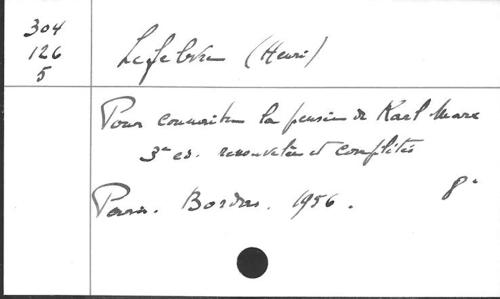 304
126
5
Lefebvre (Henri)
Pour connaitre la pensée de Karl Marx
3e ed. renouvelée et complétée
Paris. Bordas. 1956.
8°